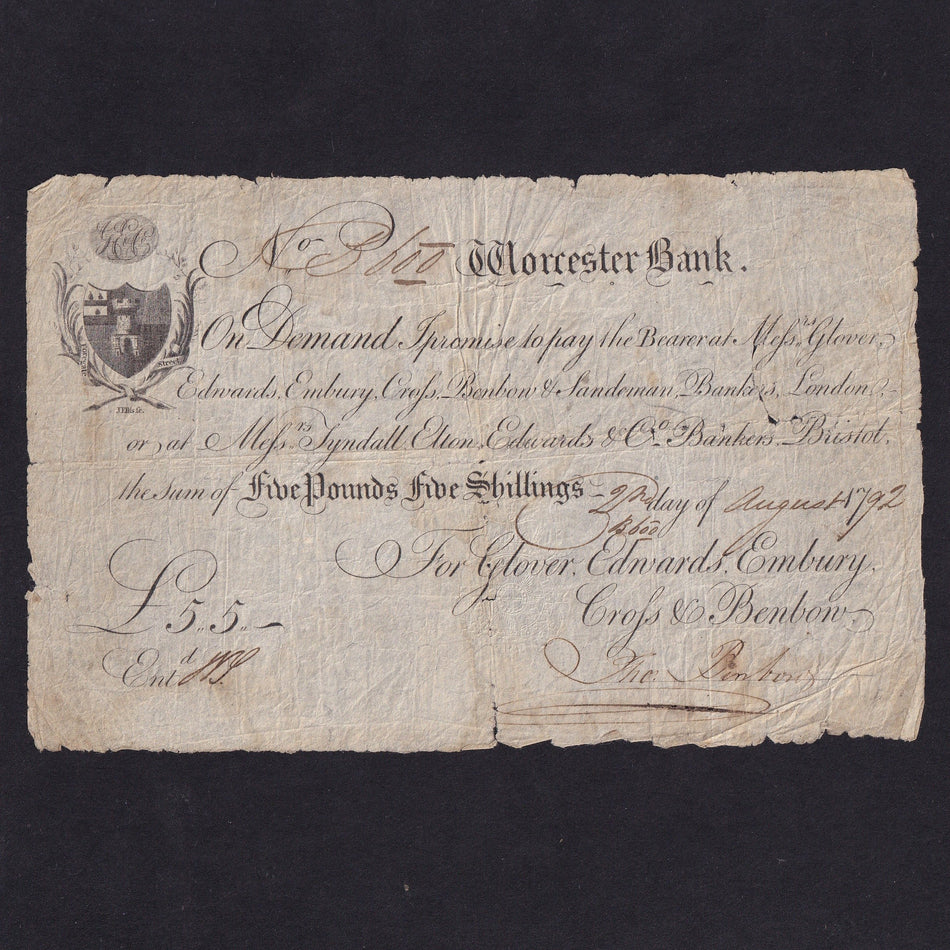 GEC
No B600 Worcester Bank.
On Demand I promise to pay the Bearer at Messrs Glover,
Edwards, Embury, Cross, Benbow & Sandeman, Bankers, London,
or at Messrs Tyndall Elton, Edwards & Co. Bankers, Bristol,
the Sum of Five Pounds Five Shillings 2nd day of August 1792
B600
For Glover, Edwards, Embury,
Cross & Benbow
£5..5..
Entd
Tho. Benbow
Street